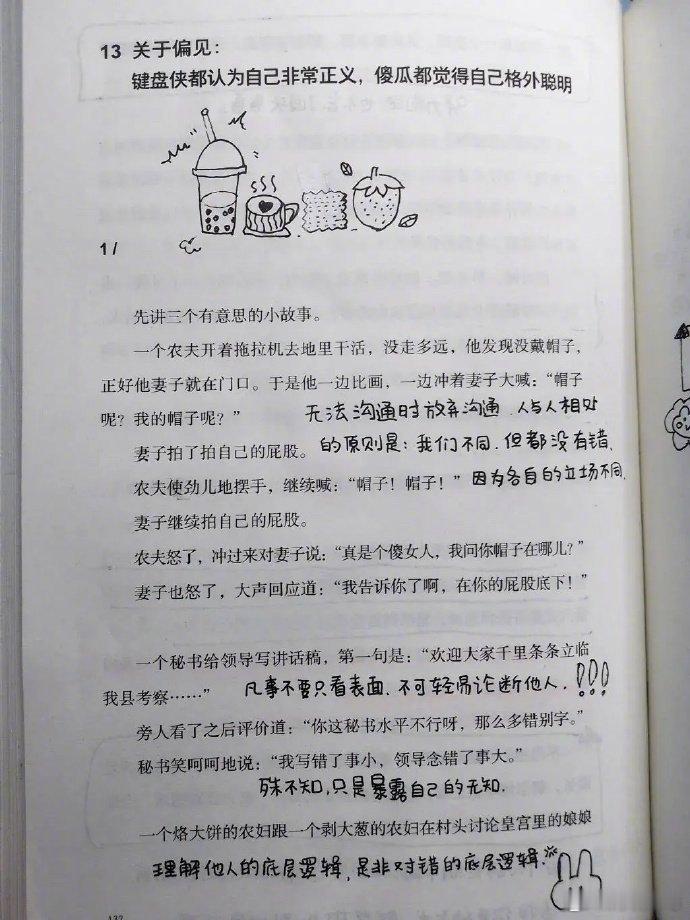 13 关于偏见：
键盘侠都认为自己非常正义，傻瓜都觉得自己格外聪明
1/
先讲三个有意思的小故事。
一个农夫开着拖拉机去地里干活，没走多远，他发现没戴帽子，
正好他妻子就在门口。于是他一边比画，一边冲着妻子大喊：“帽子
呢？我的帽子呢？”
无法沟通时放弃沟通．人与人相处
妻子拍了拍自己的屁股。
的原则是：我们不同．但都没有错．
农夫使劲儿地摆手，继续喊：“帽子！帽子！”
因为各自的立场不同．
妻子继续拍自己的屁股。
农夫怒了，冲过来对妻子说：“真是个傻女人，我问你帽子在哪儿？”
妻子也怒了，大声回应道：“我告诉你了啊，在你的屁股底下！”
一个秘书给领导写讲话稿，第一句是：“欢迎大家千里条条立临
我县考察……”
凡事不要只看表面．不可轻易论断他人．!!!
旁人看了之后评价道：“你这秘书水平不行呀，那么多错别字。”
秘书笑呵呵地说：“我写错了事小，领导念错了事大。”
殊不知,只是暴露自己的无知．
一个烙大饼的农妇跟一个剥大葱的农妇在村头讨论皇宫里的娘娘
理解他人的底层逻辑，是非对错的底层逻辑．
132